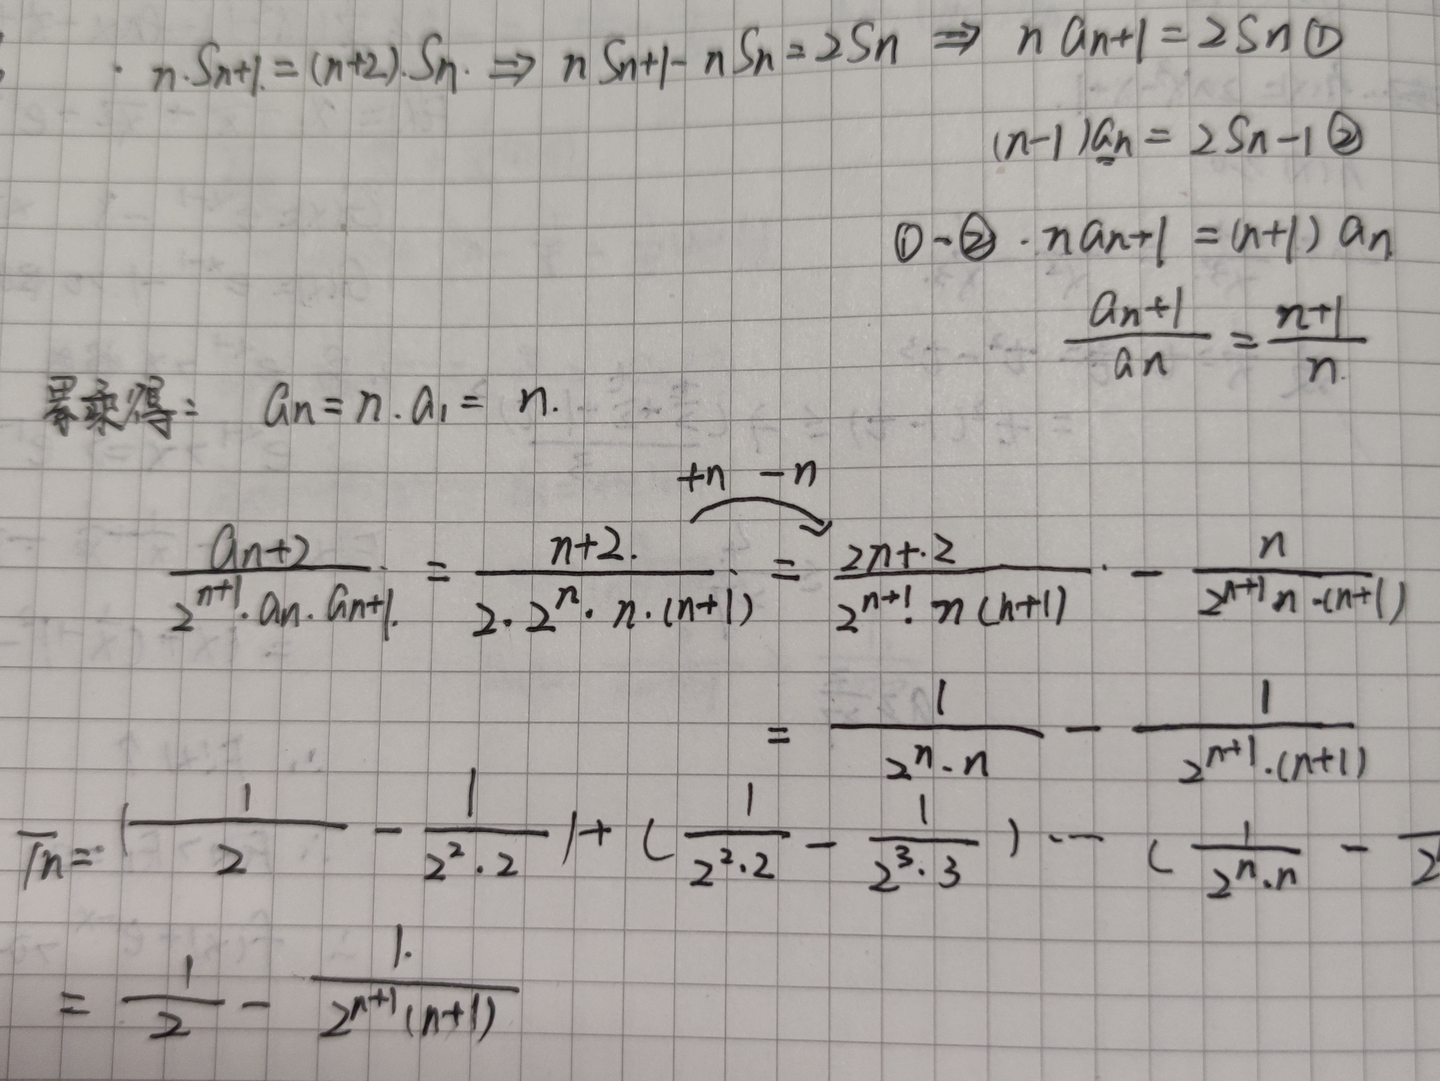 n·Sn+1=(n+2)·Sn. ⇒ nSn+1-nSn=2Sn ⇒ nan+1=2Sn①
(n-1)an=2Sn-1②
①-②·nan+1=(n+1)an
an+1/an=n+1/n.
累乘得: an=n·a1=n.
+n -n
an+2/2^n+1·an·an+1.=n+2./2·2^n·n·(n+1)=2n+2/2^n+1·n(n+1)-n/2^n+1n·(n+1)
=1/2^n·n-1/2^n+1·(n+1)
Tn=(1/2-1/2^2·2)+(1/2^2·2-1/2^3·3)…(1/2^n·n-
=1/2-1/2^n+1(n+1)